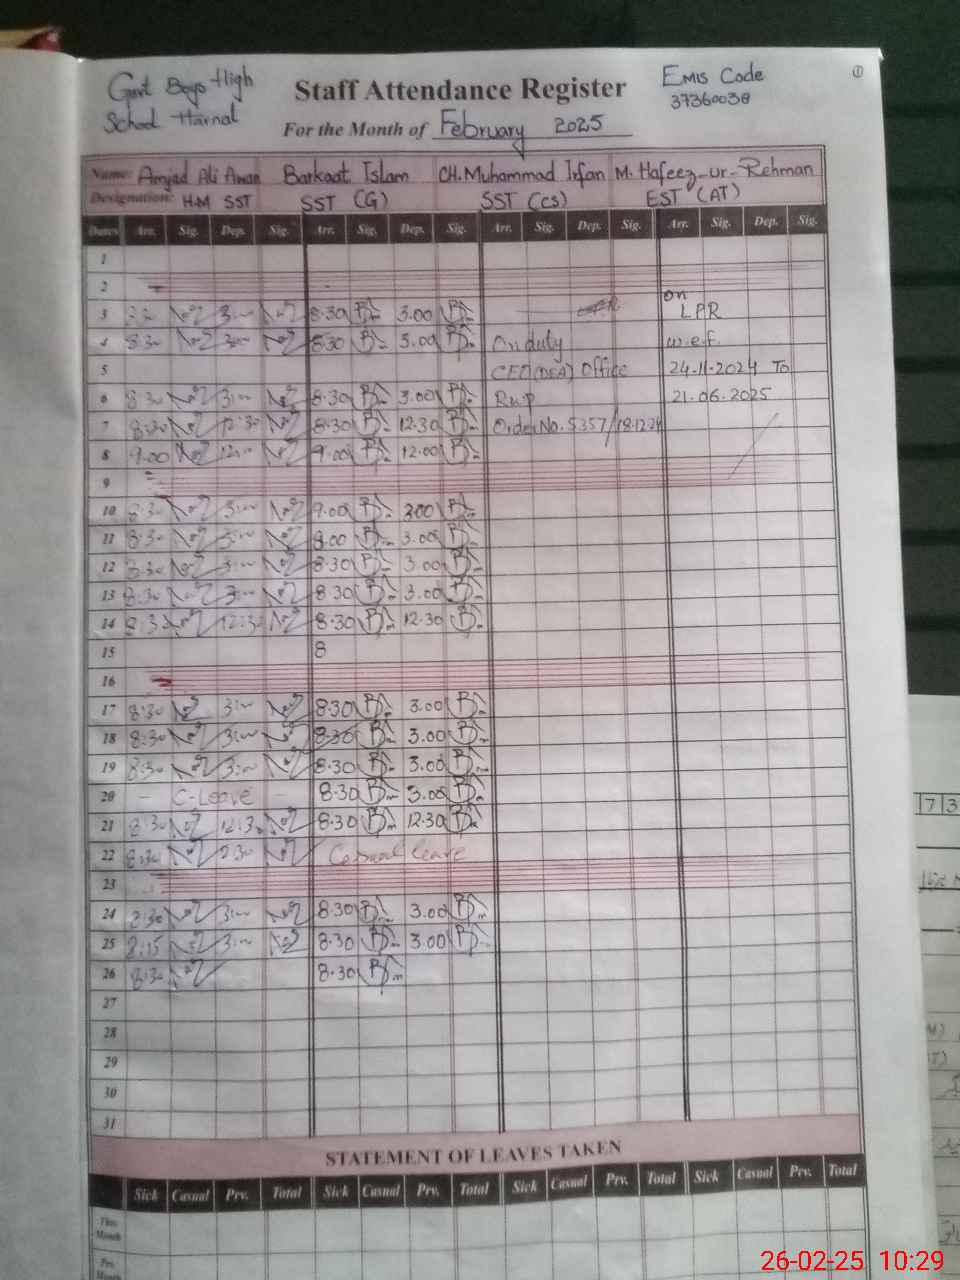 Govt Boys High
School Harnal
Staff Attendance Register
For the Month of February 2025
EMIS Code
37360038
1
Name: Amjad Ali Awan Barkaat Islam CH. Muhammad Irfan M. Hafeez-ur-Rehman
Designation: H.M SST SST (G) SST (CS) EST (AT)
Dates Arr. Sig. Dep. Sig. Arr. Sig. Dep. Sig. Arr. Sig. Dep. Sig. Arr. Sig. Dep. Sig.
1
2
on
3 8.30 3.00 LPR
4 8:30 3:00 8.30 3.00 On duty w.e.f.
5 CEO (DEA) Office 24-11-2024 To
6 8:30 3:00 8.30 3.00 Rwp 21.06.2025
7 8:30 12:30 8.30 12.30 Order No. 5357/18.12.24
8 9.00 12:00 9.00 12.00
9
10 8:30 3:00 9.00 3.00
11 8:30 3:00 8.00 3.00
12 8:30 3:00 8.30 3.00
13 8:30 3:00 8.30 3.00
14 8:30 12:30 8.30 12.30
15 8
16
17 8:30 3:00 8.30 3.00
18 8:30 3:00 8.30 3.00
19 8:30 3:00 8.30 3.00
20 - C-Leave - 8.30 3.00
21 8:30 12:30 8.30 12.30
22 8:30 Casual leave
23
24 8:30 3:00 8.30 3.00
25 8:15 3:00 8.30 3.00
26 8:30 8.30
27
28
29
30
31
STATEMENT OF LEAVES TAKEN
Sick Casual Prv. Total Sick Casual Prv. Total Sick Casual Prv. Total Sick Casual Prv. Total
This
Month
Prv.
Month
7 3
26-02-25 10:29